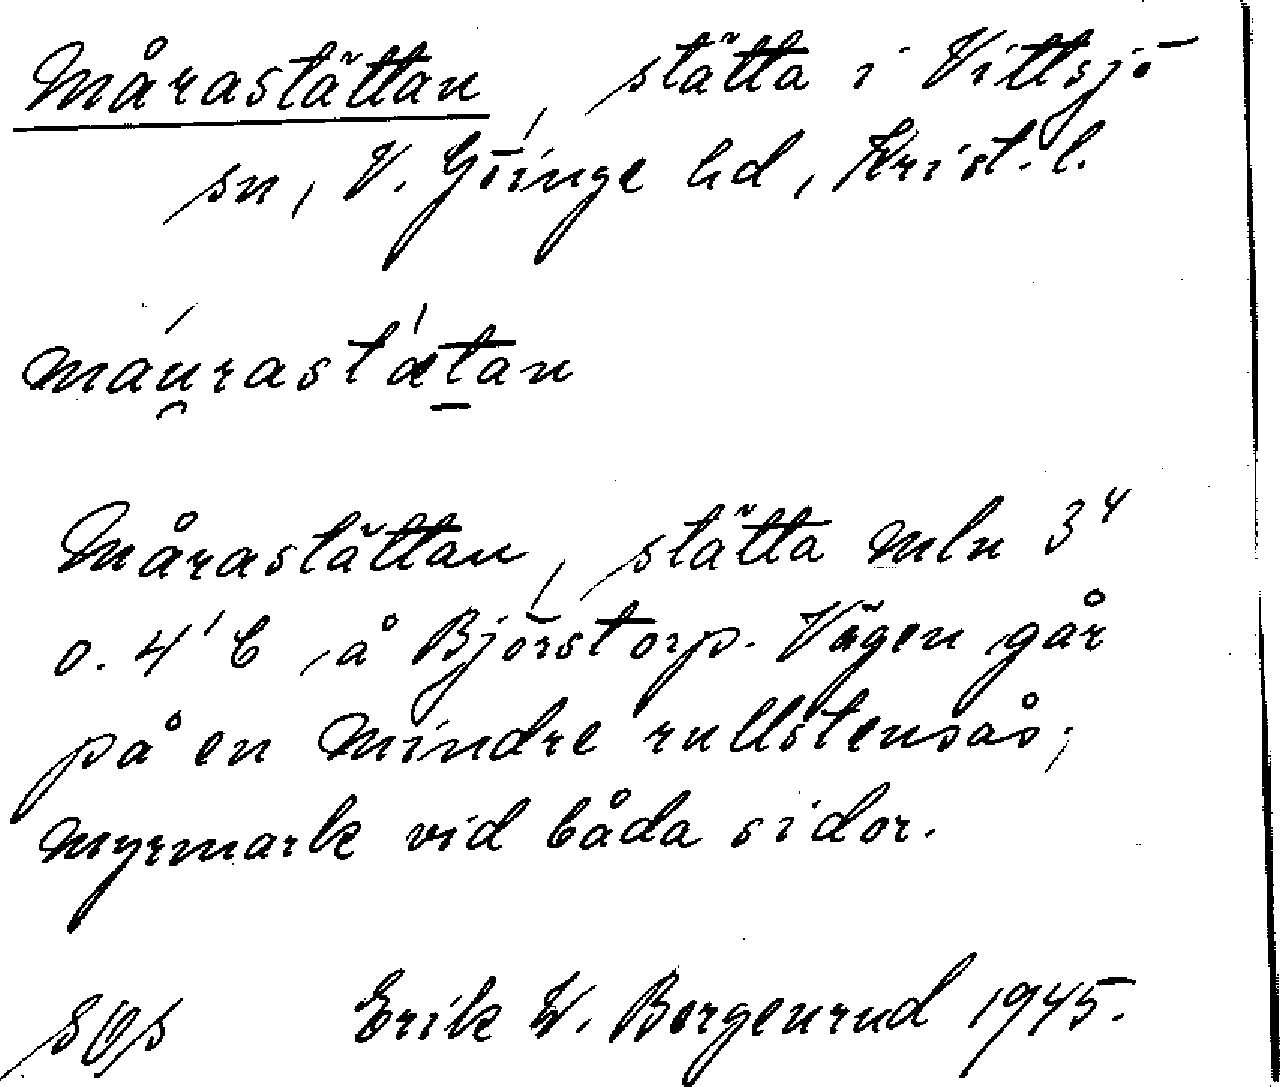 Mårastättan, stätta i Vittsjö
sn, V. Göinge hd, Krist. l.
máu̯rastæ̍t̲an
Mårastättan, stätta mln 3⁴
o. 4' C å Björstorp. Vägen går
på en mindre rullstensås;
myrmark vid båda sidor.
Erik W. Borgenrud 1945.